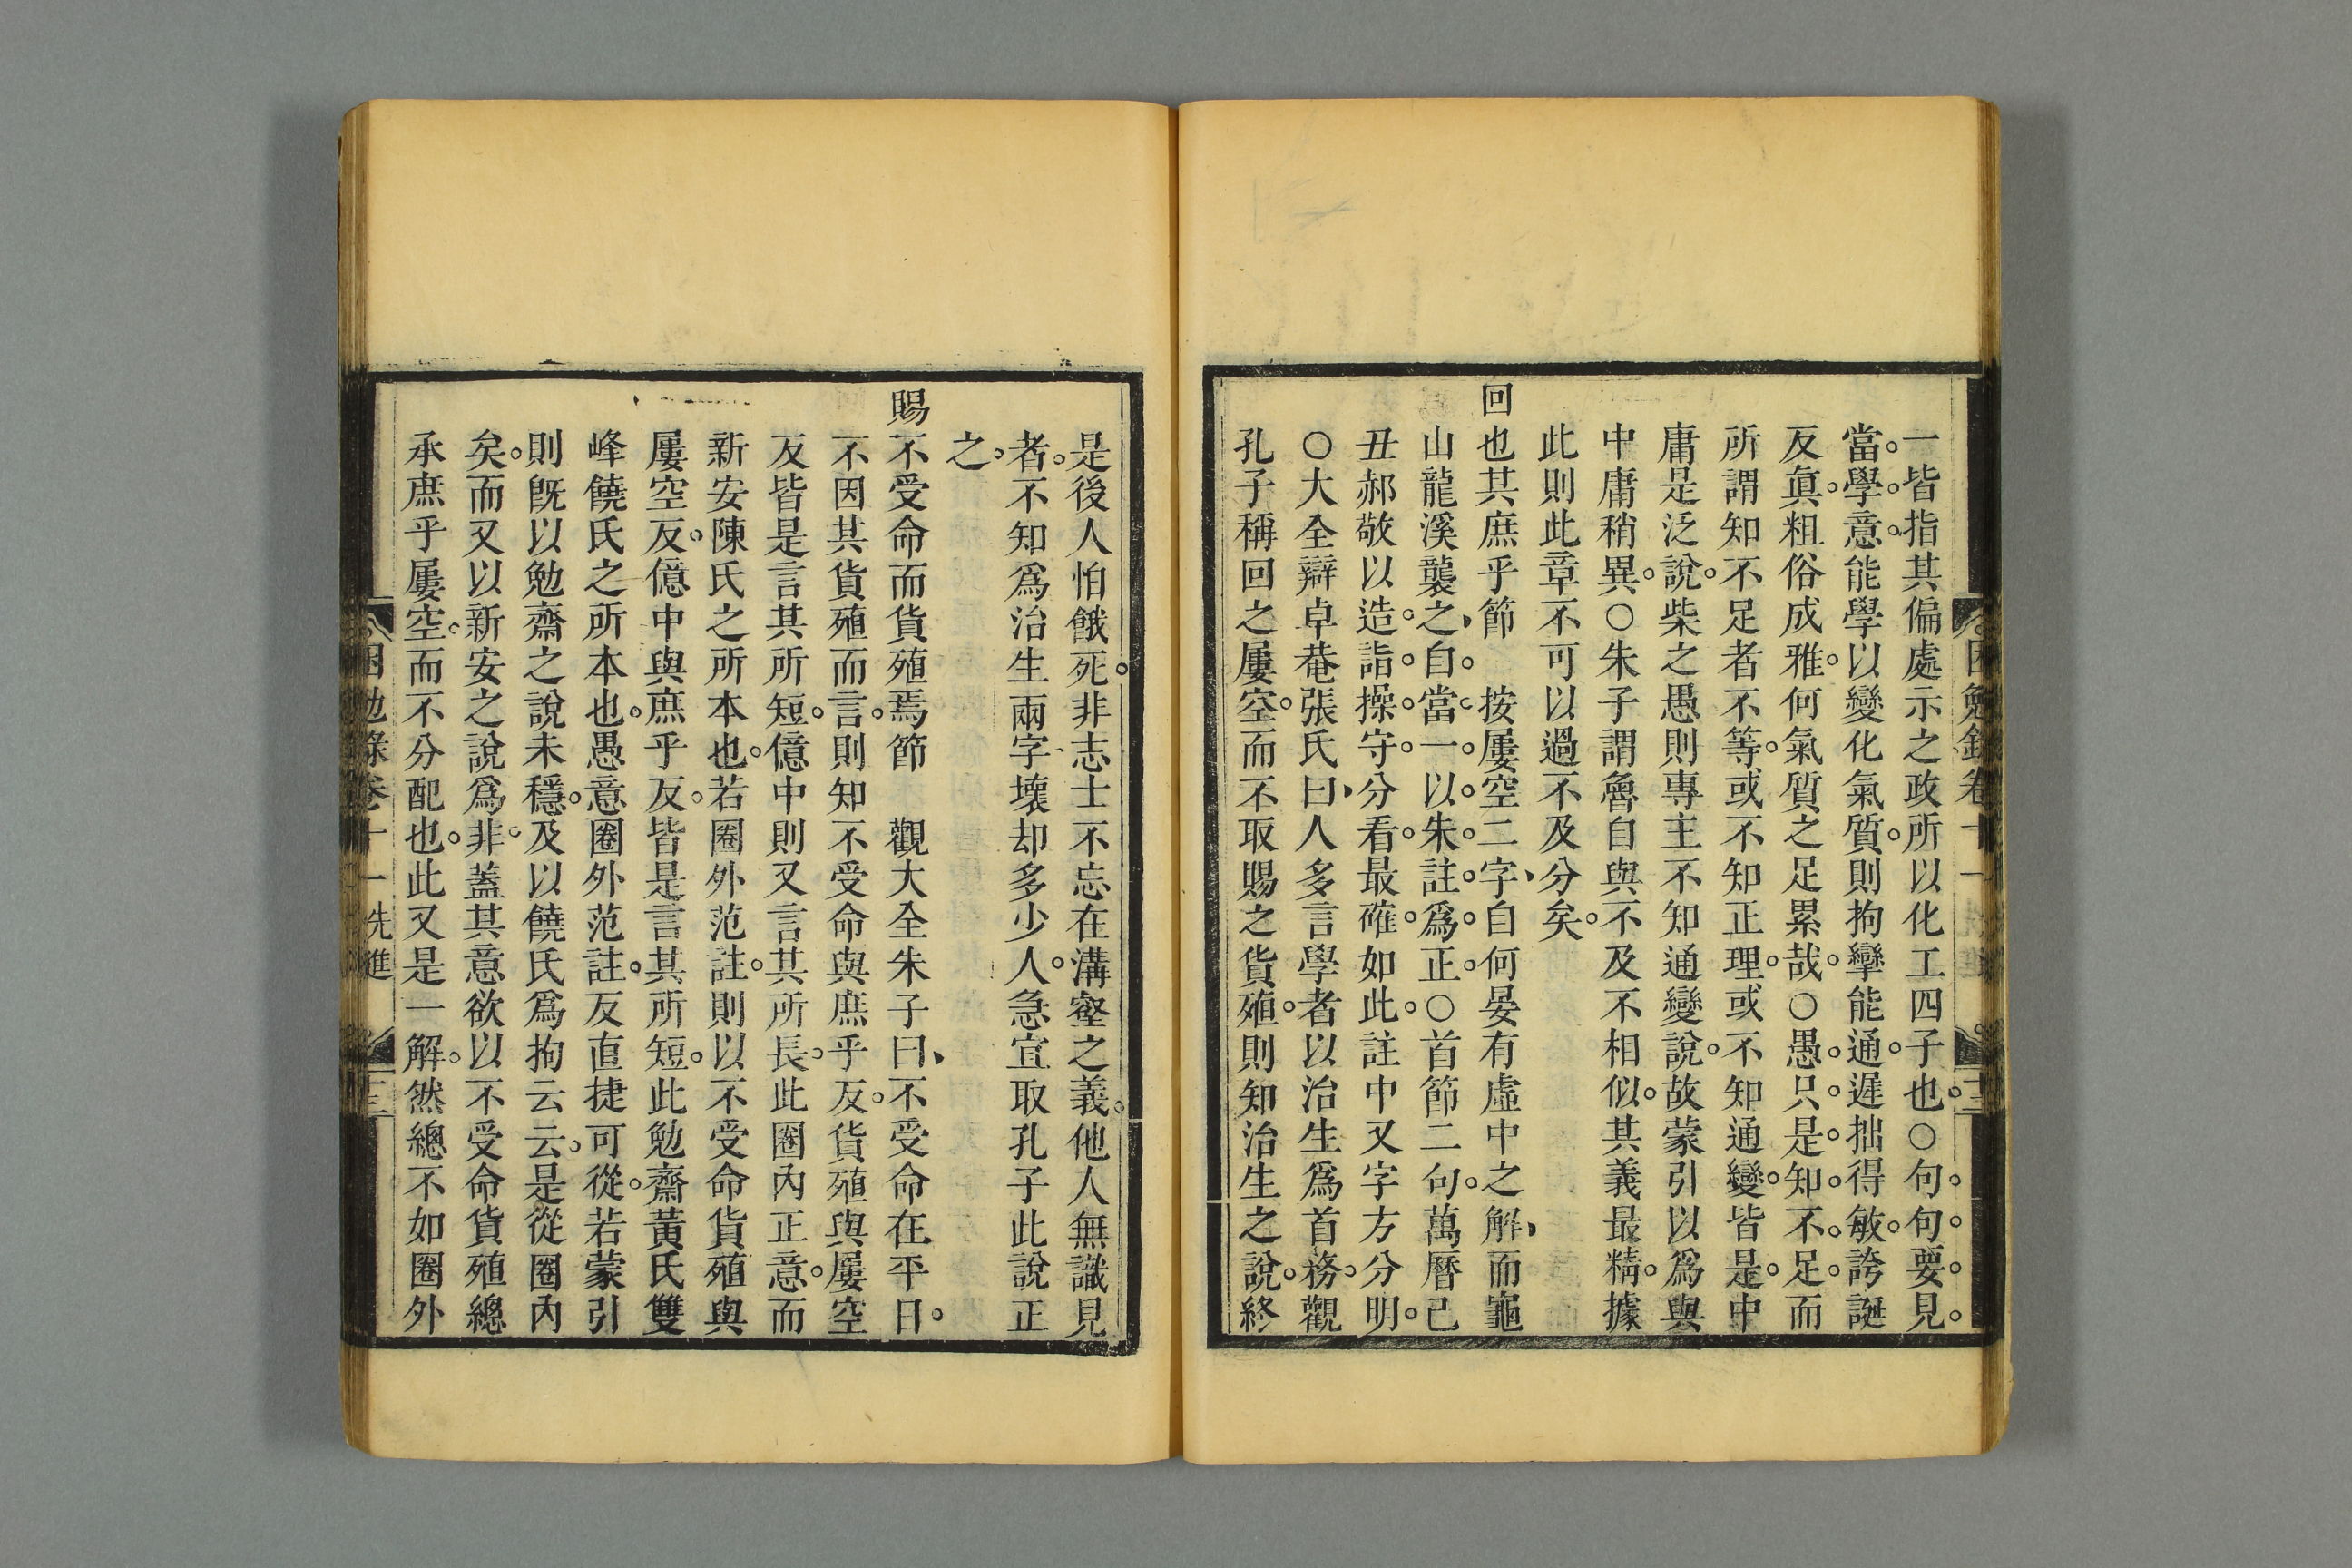 一皆指其偏處示之政所以化工四子也○句句要見
當學意能學以變化氣質則拘攣能通遲拙得敏誇誕
反眞粗俗成雅何氣質之足累哉○愚只是知不足而
所謂知不足者不等或不知正理或不知通變皆是中
庸是泛說柴之愚則專主不知通變說故蒙引以爲與
中庸稍異○朱子謂魯自與不及不相似其義最精據
此則此章不可以過不及分矣
回也其庶乎節　按屢空二字自何晏有虛中之解而龜
山龍溪襲之自當一以朱註爲正○首節二句萬曆己
丑郝敬以造詣操守分看最確如此註中又字方分明
○大全辯卓菴張氏曰人多言學者以治生爲首務觀
孔子稱回之屢空而不取賜之貨殖則知治生之說終
是後人怕餓死非志士不忘在溝壑之義他人無識見
者不知爲治生兩字壞却多少人急宜取孔子此說正
之
賜不受命而貨殖焉節　觀大全朱子曰不受命在平日
不因其貨殖而言則知不受命與庶乎反貨殖與屢空
反皆是言其所短億中則又言其所長此圈內正意而
新安陳氏之所本也若圈外范註則以不受命貨殖與
屢空反億中與庶乎反皆是言其所短此勉齋黃氏雙
峰饒氏之所本也愚意圈外范註反直捷可從若蒙引
則旣以勉齋之說未穩及以饒氏爲拘云云是從圈內
矣而又以新安之說爲非蓋其意欲以不受命貨殖總
承庶乎屢空而不分配也此又是一解然總不如圈外
困勉錄卷十一 先進